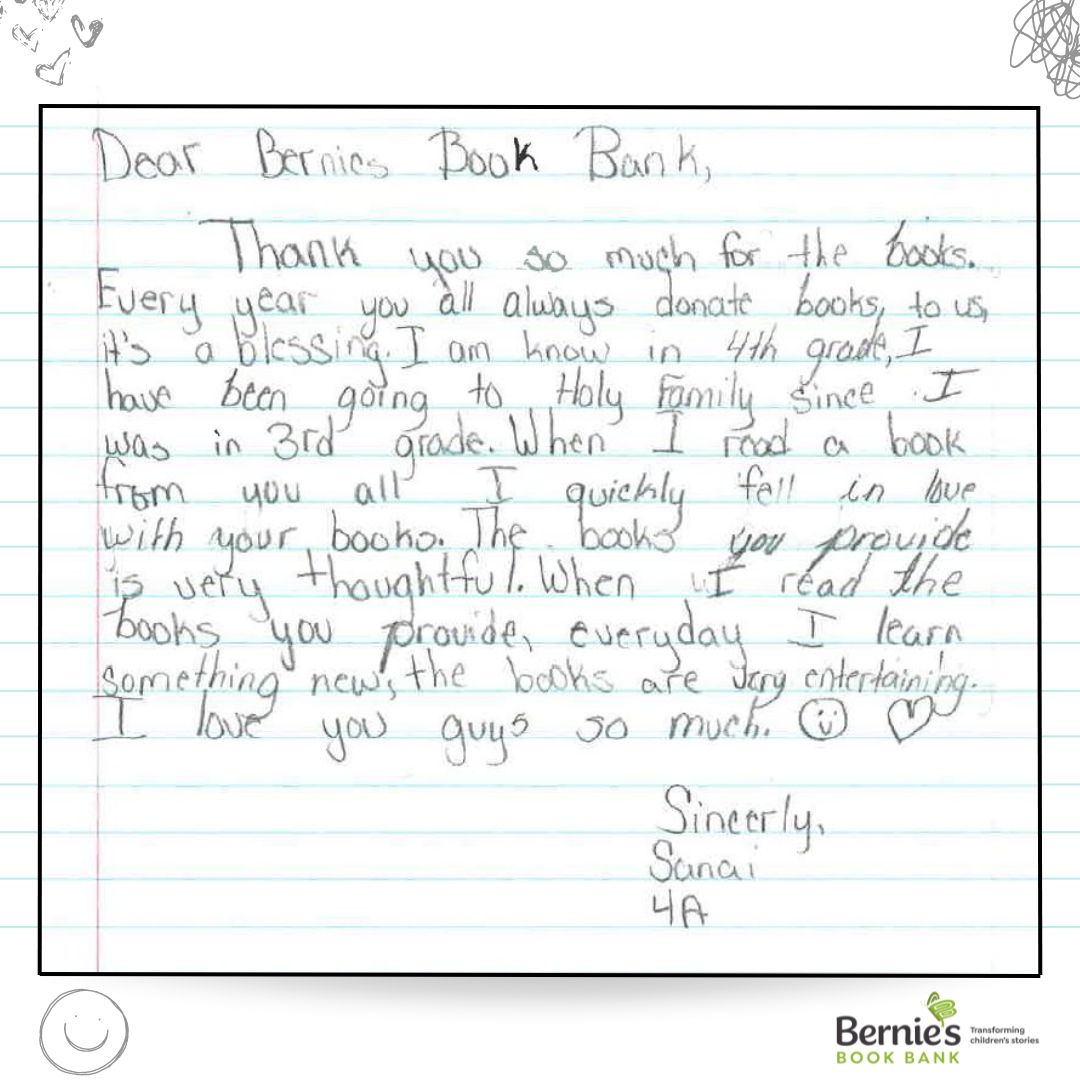 Dear Bernies Book Bank,
Thank you so much for the books.
Every year you all always donate books, to us,
it's a blessing. I am know in 4th grade, I
have been going to Holy Family since I
was in 3rd grade. When I read a book
from you all I quickly fell in love
with your books. The books you provide
is very thoughtful. When I read the
books you provide, everyday I learn
something new, the books are very entertaining.
I love you guys so much.
Sincerly,
Sanai
4A
Bernie's
BOOK BANK
Transforming
children's stories